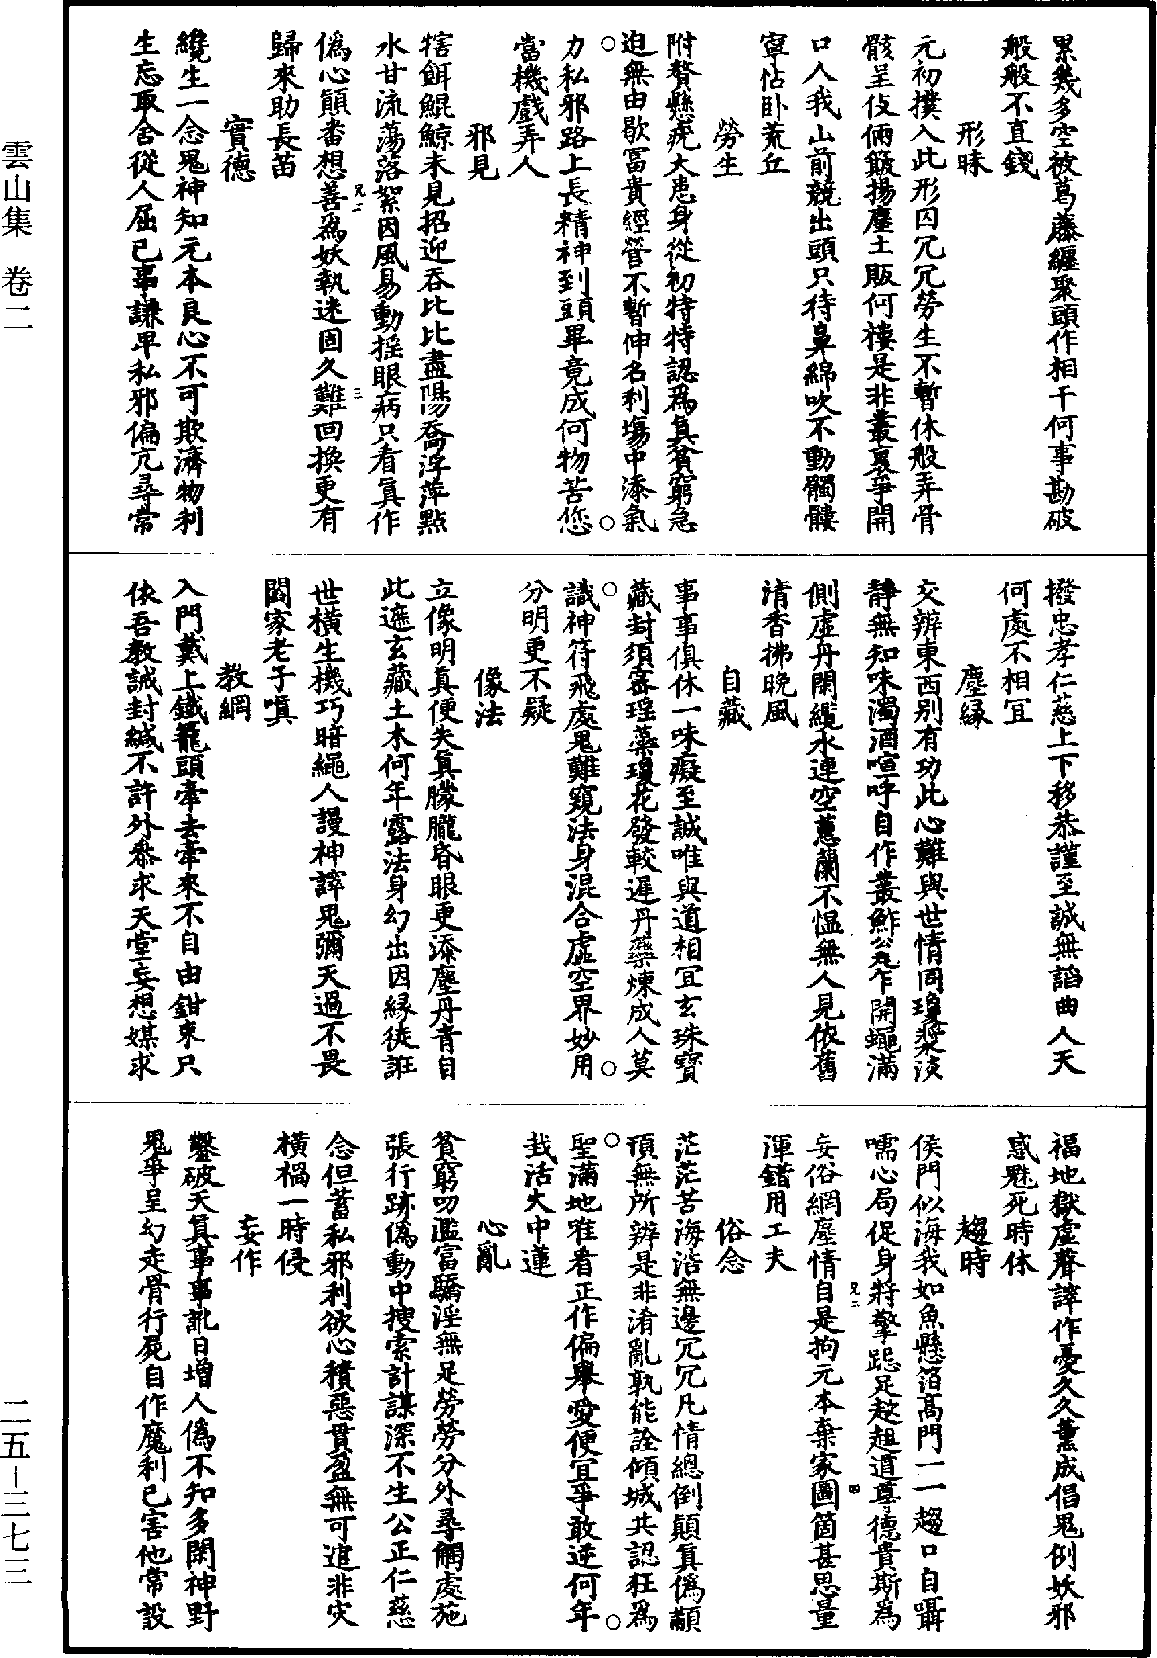 累幾多空被葛藤纏聚頭作相干何事勘破
般般不直錢
形昧
元初撲入此形囚冗冗勞生不暫休般弄骨
骸呈伎倆簸揚塵土販何樓是非叢裏爭開
口人我山前競出頭只待鼻綿吹不動髑髏
寧怗卧荒丘
勞生
附贅懸疣大患身從初特特認爲真貧窮急
迫無由歇冨貴經營不暫伸名利塲中添氣
力私邪路上長精神到頭畢竟成何物苦恁
當機戲弄人
邪見
犗餌鯤鯨未見招迎吞比比盡陽喬浮萍點
水甘流蕩落絮因風易動摇眼病只看真作
僞心顛番想善爲妖執迷固久難回換更有
歸來助長苗
實德
纔生一念鬼神知元本良心不可欺濟物利
生忘取舍從人屈已事謙卑私邪偏亢尋常
撥忠孝仁慈上下移恭謹至誠無諂曲人天
何處不相宜
塵縁
交辦東西别有功此心難與世情同瓊漿淡
靜無知味濁酒喧呼自作叢鮓瓮乍開蠅滿
側虛丹閑纜水連空蕙蘭不慍無人見依舊
清香拂晚風
自藏
事事俱休一味癡至誠唯與道相宜玄珠寳
藏封須審瑶蘂瓊花發較遲丹藥煉成人莫
識神符飛處鬼難窺法身混合虛空界妙用
分明更不疑
像法
立像明真便失真朦朧昏眼更添塵丹青自
此遮玄藏土木何年露法身幻出因縁徒誑
世横生機巧暗繩人謾神謗鬼彌天過不畏
閻家老子嗔
教綱
入門戴上鐵籠頭牽去牽來不自由鉗束只
依吾教誡封緘不許外叅求天堂妄想媒求
福地獄虛聲謗作憂久久薰成倡鬼倒妖邪
惑魅死時休
趨時
侯門似海我如魚懸箔高門一一趨口自囁
嚅心局促身將擎跽足趑趄道尊德貴斯爲
妄俗網塵情自是拘元本棄家圖箇甚思量
渾錯用工夫
俗念
茫茫苦海浩無邊冗冗凡情總倒顛真僞顢
頇無所辨是非淆亂孰能詮傾城共認狂爲
聖滿地唯看正作偏舉愛便宜爭敢逆何年
㘽活火中蓮
心亂
貧窮叨濫富驕淫無足勞勞分外尋觸處施
張行跡僞動中搜索計謀深不生公正仁慈
念但蓄私邪利欲心積惡貫盈無可逭非灾
横禍一時侵
妄作
鑿破天真事事訛日增人僞不知多閑神野
鬼爭呈幻走骨行屍自作魔利已害他常設
雲山集　卷二
二五－三七三